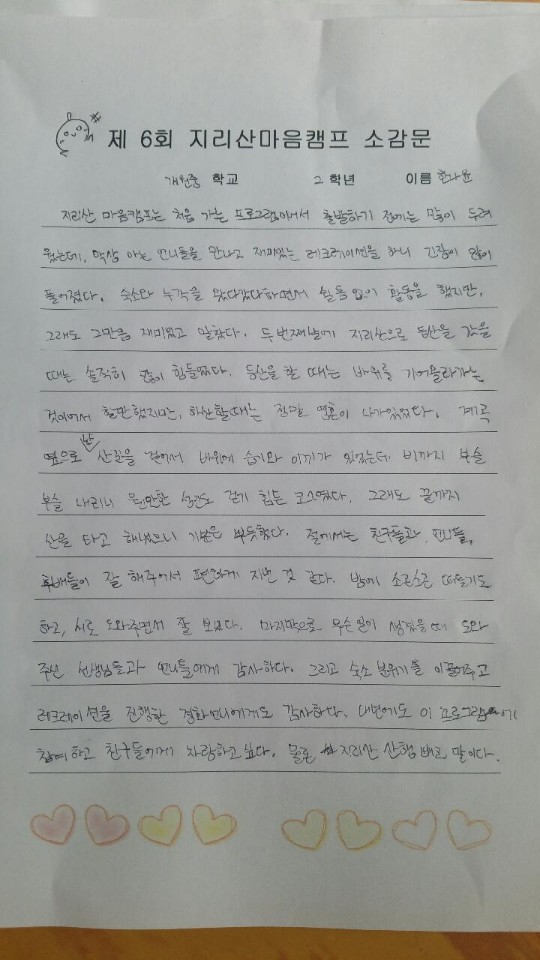 제 6회 지리산마음캠프 소감문
개원중 학교 2 학년 이름 한나윤
지리산 마음캠프는 처음 가는 프로그램이어서 출발하기 전에는 많이 두려
웠는데, 막상 아는 언니들을 만나고 재미있는 레크레이션을 하니 긴장이 많이
풀어졌다. 숙소와 누각을 왔다갔다하면서 쉴틈 없이 활동을 했지만,
그래도 그만큼 재미있고 알찼다. 두번째날에 지리산으로 등산을 갔을
때는 솔직히 많이 힘들었다. 등산을 할 때는 바위를 기어올라가는
것이어서 할만했지만, 하산할때는 정말 영혼이 나가있었다. 계곡
옆으로 난 산길을 걸어서 바위에 습기와 이끼가 있었는데, 비까지 부슬
부슬 내리니 웬만한 성인도 걷기 힘든 코스였다. 그래도 끝까지
산을 타고 해냈으니 기분은 뿌듯했다. 절에서는 친구들과, 언니들,
후배들이 잘 해주어서 편하게 지낸 것 같다. 밤에 소곤소곤 떠들기도
하고, 서로 도와주면서 잘 보냈다. 마지막으로 무슨일이 생겼을때 도와
주신 선생님들과 언니들에게 감사하다. 그리고 숙소 분위기를 이끌어주고
레크레이션을 진행한 경화언니에게도 감사하다. 내년에도 이 프로그램에
참여하고 친구들에게 자랑하고싶다. 물론 지리산 산행 빼고 말이다.